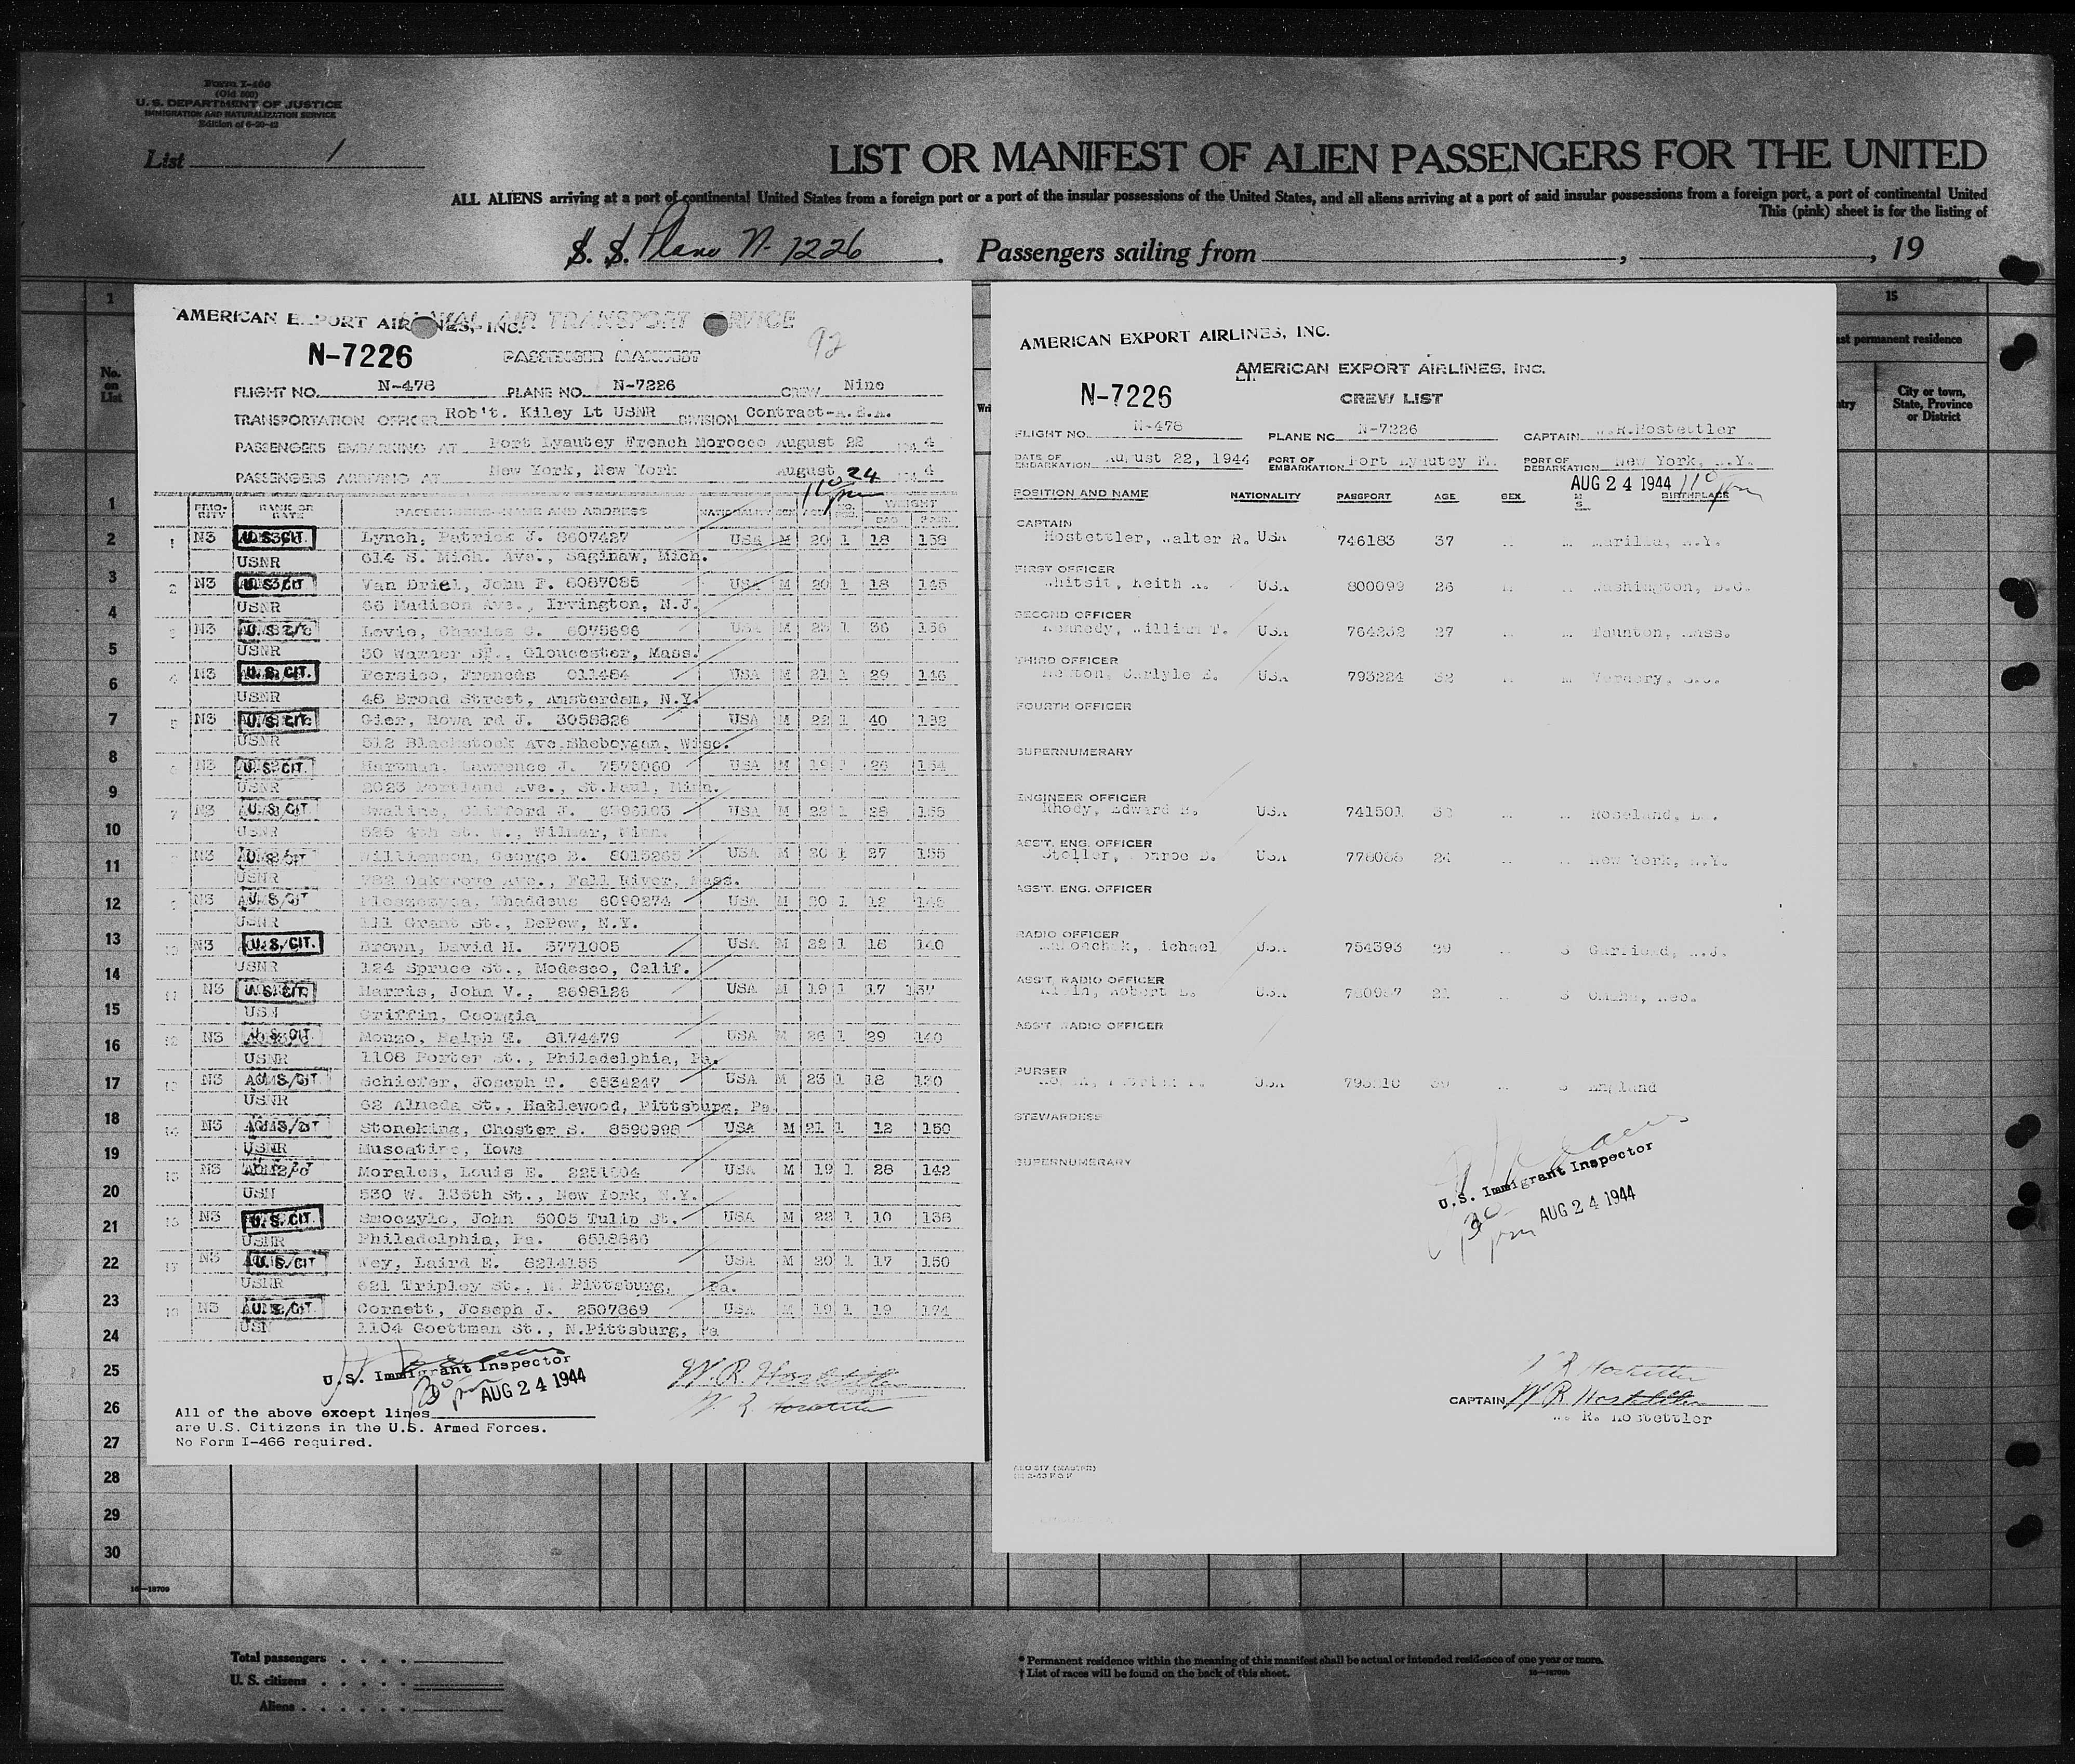 Form I-466
(Old 500)
U. S. DEPARTMENT OF JUSTICE
IMMIGRATION AND NATURALIZATION SERVICE
Edition of 6-20-42
List 1
LIST OR MANIFEST OF ALIEN PASSENGERS FOR THE UNITED
ALL ALIENS arriving at a port of continental United States from a foreign port or a port of the insular possessions of the United States, and all aliens arriving at a port of said insular possessions from a foreign port, a port of continental United
This (pink) sheet is for the listing of
S. S. Plane N-7226 . Passengers sailing from , , 19
1
No. on List
1
2
3
4
5
6
7
8
9
10
11
12
13
14
15
16
17
18
19
20
21
22
23
24
25
26
27
28
29
30
AMERICAN EXPORT AIRLINES, INC.
AIR TRANSPORT SERVICE
92
N-7226
PASSENGER MANIFEST
FLIGHT NO. N-478 PLANE NO. N-7226 CREW Nine
TRANSPORTATION OFFICER Rob't. Kiley Lt USNR DIVISION Contract-A.E.A.
PASSENGERS EMBARKING AT Port Lyautey French Morocco August 22 194 4
PASSENGERS ARRIVING AT New York, New York August 24 194 4
11 pm
PRIORITY RANK OR RATE PASSENGERS-NAME AND ADDRESS NATIONALITY SEX AGE NO. WEIGHT
1 N3 U.S.CIT. Lynch, Patrick J. 8607427 USA M 20 1 18 158
USNR 614 S. Mich. Ave., Saginaw, Mich.
2 N3 Van Driel, John F. 6087085 USA M 20 1 18 145
USNR 66 Madison Ave., Irvington, N.J.
3 N3 Charles 6075696 USA M 23 1 36 156
USNR 30 Warner St., Gloucester, Mass.
4 N3 U.S.CIT. Persico, Francis 011484 USA M 21 1 29 146
USNR 48 Broad Street, Amsterdam, N.Y.
5 N3 U.S.CIT. Gier, Howa rd J. 3058826 USA M 22 1 40 132
USNR 512 Blackstock Ave Sheboygan, Wisc.
6 N3 U.S.CIT. Hartman, Lawrence J. 7573060 USA M 19 1 26 154
USNR 2023 Portland Ave., St.Paul, Minn.
7 N3 U.S.CIT Clifford J. USA M 22 1 28 155
USNR 525 4th St. W., Wilmar, Minn.
8 N3 Williamson, George B. USA M 20 1 27 155
USNR 782 Oakgrove Ave., Fall River, Mass.
9 N3 U.S/CIT Thaddeus 6090274 USA M 20 1 12 145
USNR 111 Grant St., DePew, N.Y.
10 N3 U.S/CIT. Brown, David H. 3771005 USA M 22 1 18 140
USNR 124 Spruce St., Modesco, Calif.
11 N3 U.S.CIT. Harris, John V., 2698126 USA M 19 1 17 137
USN Griffin, Georgia
12 N3 U.S.CIT Monzo, Ralph T. 8174479 USA M 26 1 29 140
USNR 1108 Porter St., Philadelphia, Pa.
13 N3 U.S/CIT Schiefer, Joseph T. 6534247 USA M 23 1 18 130
USNR 62 Almeda St., Hazlewood, Pittsburg, Pa.
14 N3 Stoneking, Chester S. 8590998 USA M 21 1 12 150
USNR Muscatine, Iowa
15 N3 Morales, Louis E. 2251604 USA M 19 1 28 142
USN 530 W. 136th St., New York, N.Y.
16 N3 U.S.CIT. Smoczylo, John 5005 Tulip St. USA M 22 1 10 138
USNR Philadelphia, Pa. 6518866
17 N3 U.S/CIT Wey, Laird E. 8214155 USA M 20 1 17 150
USNR 621 Tripley St., N. Pittsburg, Pa.
18 N3 U.S/CIT. Cornett, Joseph J. 2507869 USA M 19 1 19 174
USN 1104 Goettman St., N.Pittsburg, Pa
U.S. Immigrant Inspector
pm AUG 24 1944
W. R. Hostettler
W. R. Hostettler
All of the above except lines
are U.S. Citizens in the U.S. Armed Forces.
No Form I-466 required.
AMERICAN EXPORT AIRLINES, INC.
AMERICAN EXPORT AIRLINES, INC.
N-7226
CREW LIST
FLIGHT NO. N-478 PLANE NO. N-7226 CAPTAIN W.R.Hostettler
DATE OF EMBARKATION August 22, 1944 PORT OF EMBARKATION Port Lyautey F.M. PORT OF DEBARKATION New York, N.Y.
AUG 24 1944 11 pm
POSITION AND NAME NATIONALITY PASSPORT AGE SEX M S BIRTHPLACE
CAPTAIN
Hostettler, Walter R. USA 746183 37 M M Marilla, N.Y.
FIRST OFFICER
Whitsit, Keith USA 800099 26 M M Washington, D.C.
SECOND OFFICER
Kennedy, William T. USA 764232 27 M M Taunton, Mass.
THIRD OFFICER
Newton, Carlyle USA 793224 32 M M Verdery, S.C.
FOURTH OFFICER
SUPERNUMERARY
ENGINEER OFFICER
Rhody, Edward USA 741501 M M Roseland, La.
ASS'T. ENG. OFFICER
Steller, Monroe D. USA 778088 24 M M New York, N.Y.
ASS'T. ENG. OFFICER
RADIO OFFICER
Michael USA 754393 29 M S Garfield, N.J.
ASS'T. RADIO OFFICER
Klein, Robert USA 21 M S Omaha, Neb.
ASS'T. RADIO OFFICER
PURSER
USA S England
STEWARDESS
SUPERNUMERARY
U.S. Immigrant Inspector
pm AUG 24 1944
W R Hostettler
CAPTAIN W R Hostettler
W. R. Hostettler
15
permanent residence
City or town, State, Province or District
16—18709
Total passengers
U. S. citizens
Aliens
* Permanent residence within the meaning of this manifest shall be actual or intended residence of one year or more.
† List of races will be found on the back of this sheet.